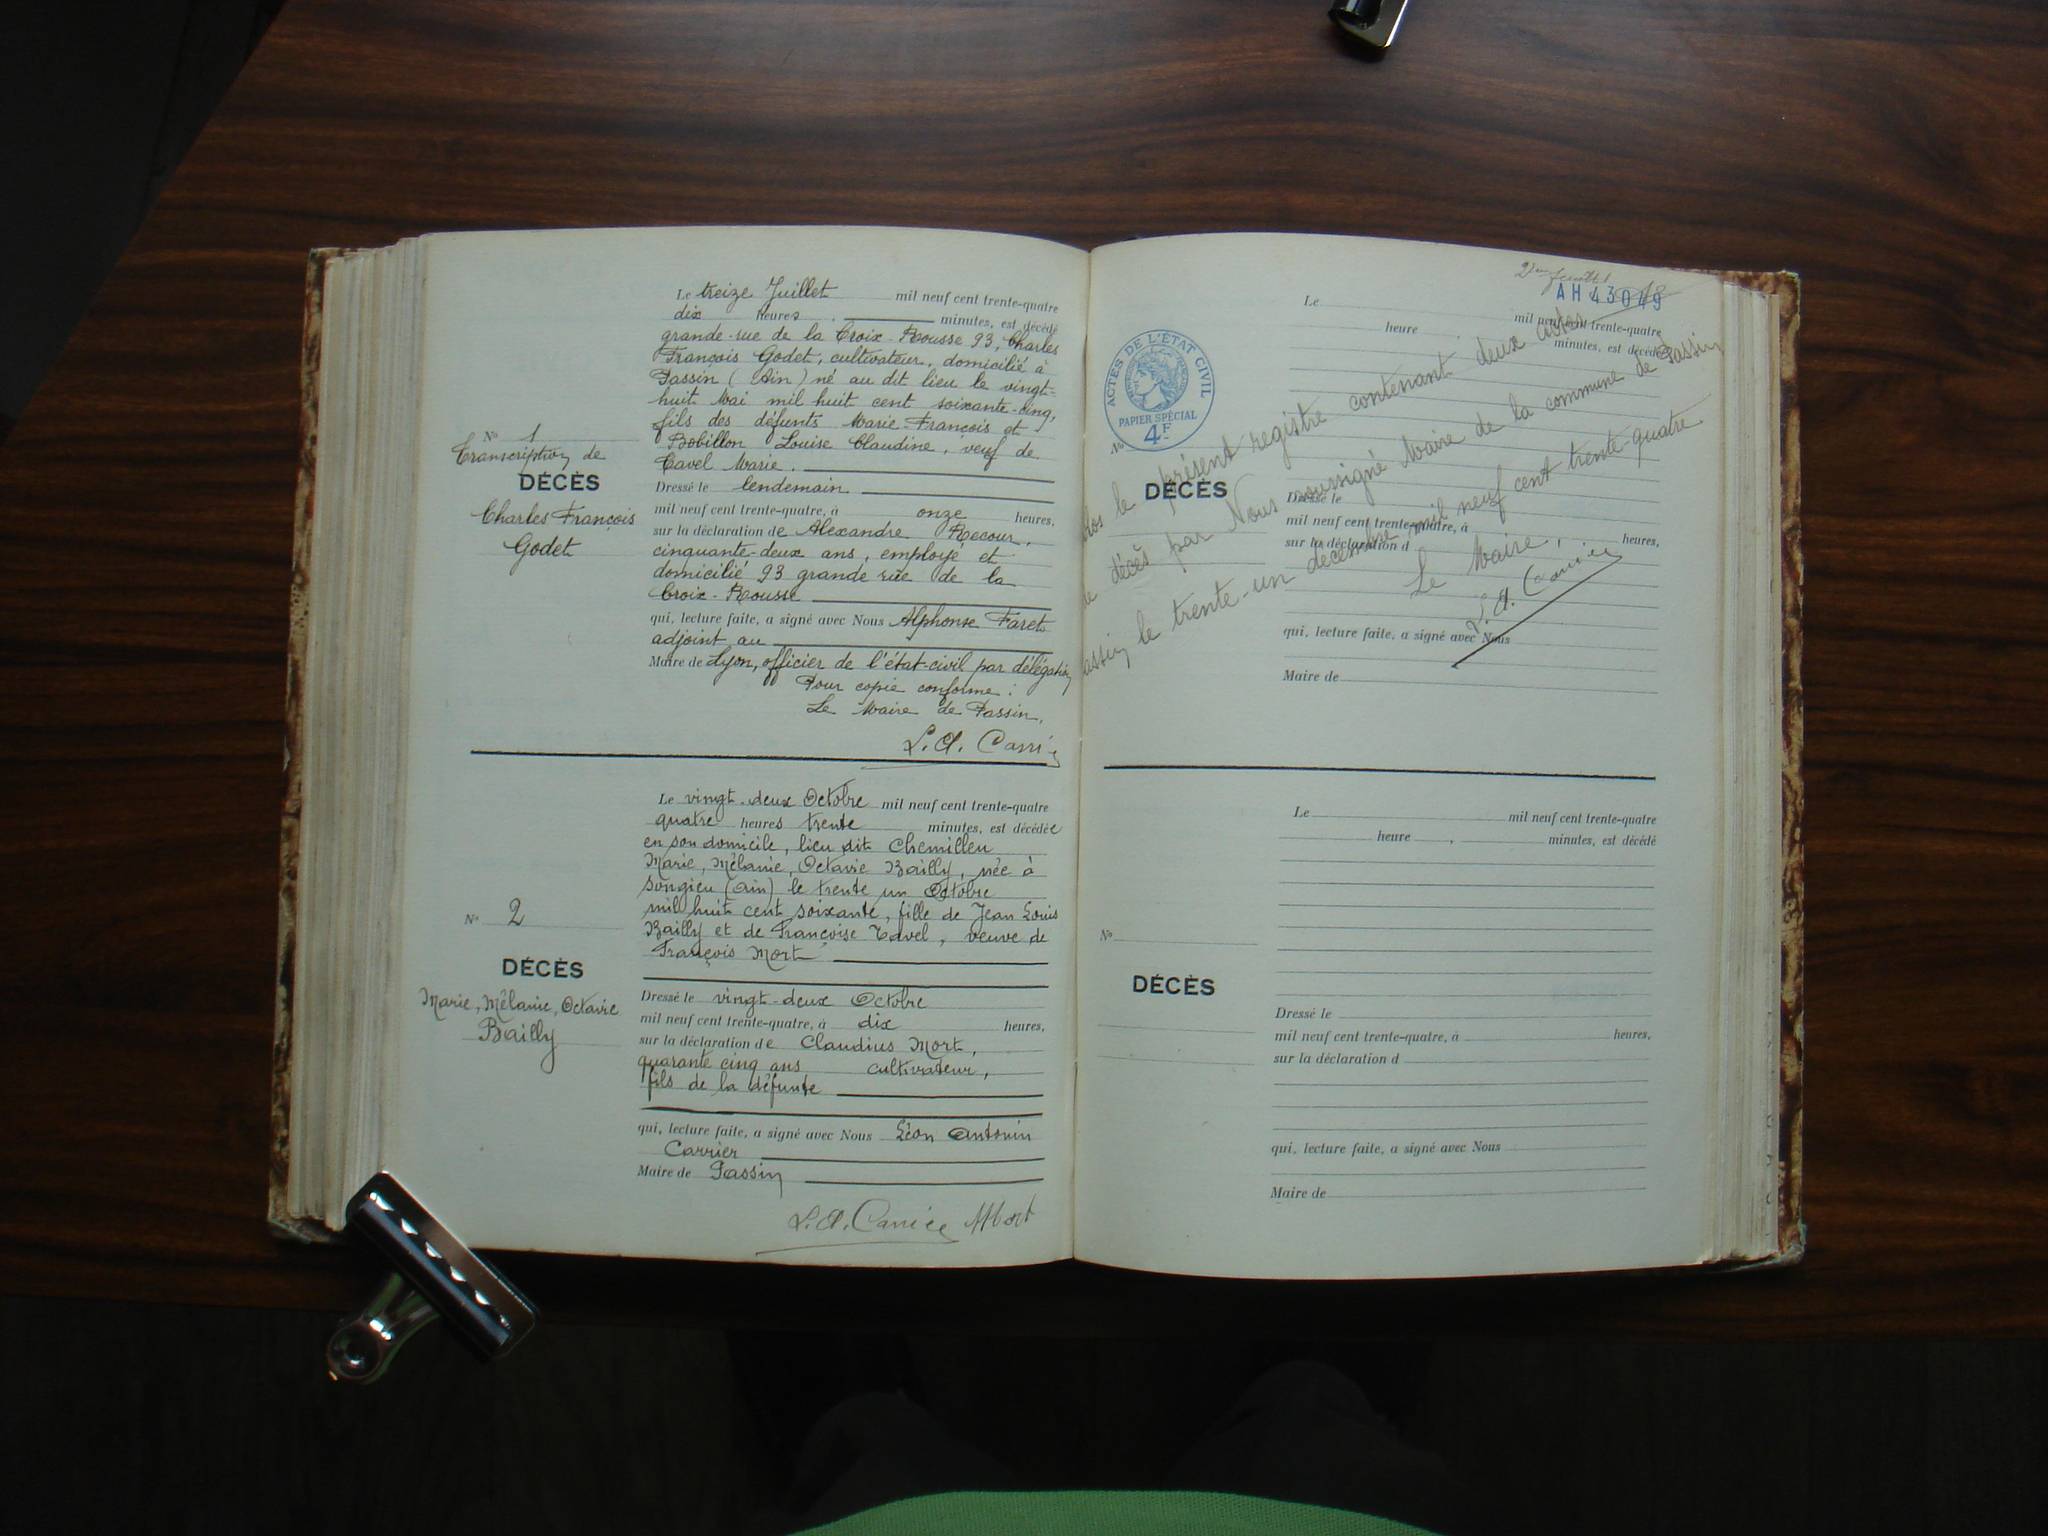 Le treize Juillet mil neuf cent trente-quatre
dix heures minutes, est décédé
grande-rue de la Croix-Rousse 93, Charles
François Godet, cultivateur, domicilié à
Passin (Ain) né au dit lieu le vingt-
huit Mai mil huit cent soixante-cinq,
fils des défunts Marie François et
Bobillon Louise Claudine, veuf de
Tavel Marie.
Nº 1
Transcription de
DÉCÈS
Charles François
Godet
Dressé le lendemain
mil neuf cent trente-quatre, à onze heures,
sur la déclaration de Alexandre Recour,
cinquante-deux ans, employé et
domicilié 93 grande rue de la
Croix-Rousse
qui, lecture faite, a signé avec Nous Alphonse Faret
adjoint au
Maire de Lyon, officier de l'état-civil par délégation
Pour copie conforme :
Le Maire de Passin,
L. A. Carrier
Le vingt-deux Octobre mil neuf cent trente-quatre
quatre heures trente minutes, est décédée
en son domicile, lieu dit Chemilleu
Marie, Mélanie, Octavie Bailly, née à
Songieu (Ain) le trente un Octobre
mil huit cent soixante, fille de Jean Louis
Bailly et de Françoise Tavel, veuve de
François Mort
Nº 2
DÉCÈS
Marie, Mélanie, Octavie
Bailly
Dressé le vingt-deux Octobre
mil neuf cent trente-quatre, à dix heures,
sur la déclaration de Claudius Mort,
quarante cinq ans cultivateur,
fils de la défunte
qui, lecture faite, a signé avec Nous Léon Antonin
Carrier
Maire de Passin
L. A. Carrier Mort
AH 43049
ACTES DE L'ÉTAT CIVIL
PAPIER SPÉCIAL
4F
Le mil neuf cent trente-quatre
heure minutes, est décédé
Clos le présent registre contenant deux actes
de décès par Nous soussigné Maire de la commune de Passin
Passin le trente-un décembre mil neuf cent trente-quatre
Le Maire,
L. A. Carrier
Nº
DÉCÈS
Dressé le
mil neuf cent trente-quatre, à heures,
sur la déclaration d
qui, lecture faite, a signé avec Nous
Maire de
Le mil neuf cent trente-quatre
heure , minutes, est décédé
Nº
DÉCÈS
Dressé le
mil neuf cent trente-quatre, à heures,
sur la déclaration d
qui, lecture faite, a signé avec Nous
Maire de